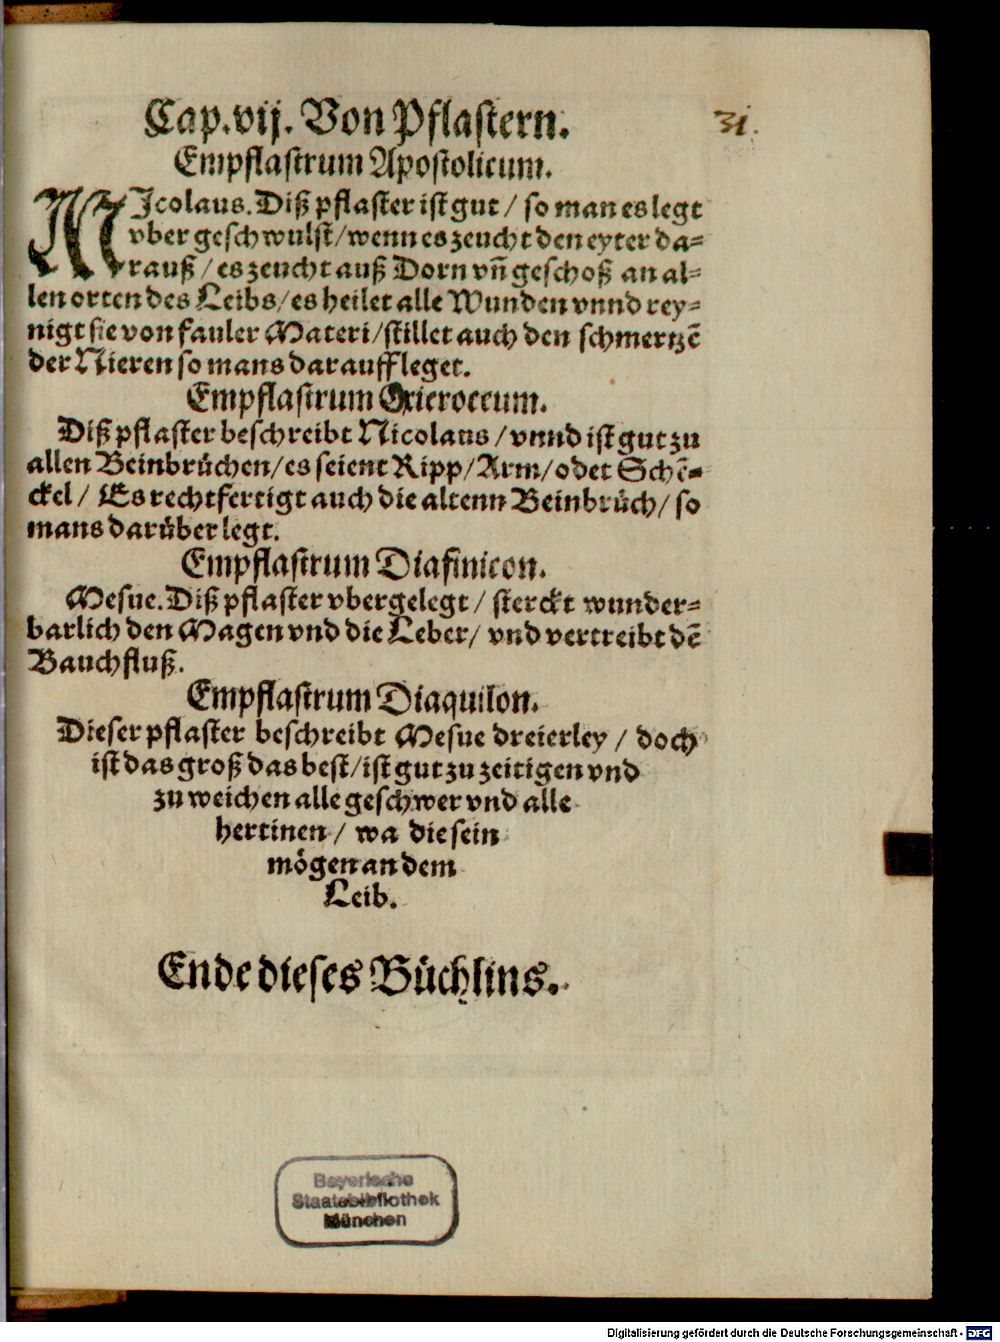 Cap.vij. Von Pflastern.
31.
Empflastrum Apostolicum.
NJcolaus. Diß pflaster ist gut / so man es legt
vber geschwulst / wenn es zeucht den eyter da=
rauß / es zeucht auß Dorn vñ geschoß an al=
len orten des Leibs / es heilet alle Wunden vnnd rey=
nigt sie von fauler Materi / stillet auch den schmertzẽ
der Nieren so mans darauff leget.
Empflastrum Oxicroceum.
Diß pflaster beschreibt Nicolaus / vnnd ist gut zu
allen Beinbrüchen / es seient Ripp / Arm / odet Schẽ=
ckel / Es rechtfertigt auch die altenn Beinbrüch / so
mans darüber legt.
Empflastrum Diafinicon.
Mesue. Diß pflaster vbergelegt / sterckt wunder=
barlich den Magen vnd die Leber / vnd vertreibt dẽ
Bauchfluß.
Empflastrum Diaquilon.
Dieser pflaster beschreibt Mesue dreierley / doch
ist das groß das best / ist gut zu zeitigen vnd
zu weichen alle geschwer vnd alle
hertinen / wa die sein
mögen an dem
Leib.
Ende dieses Büchlins.
Bayerische
Staatsbibliothek
München
Digitalisierung gefördert durch die Deutsche Forschungsgemeinschaft - DFG